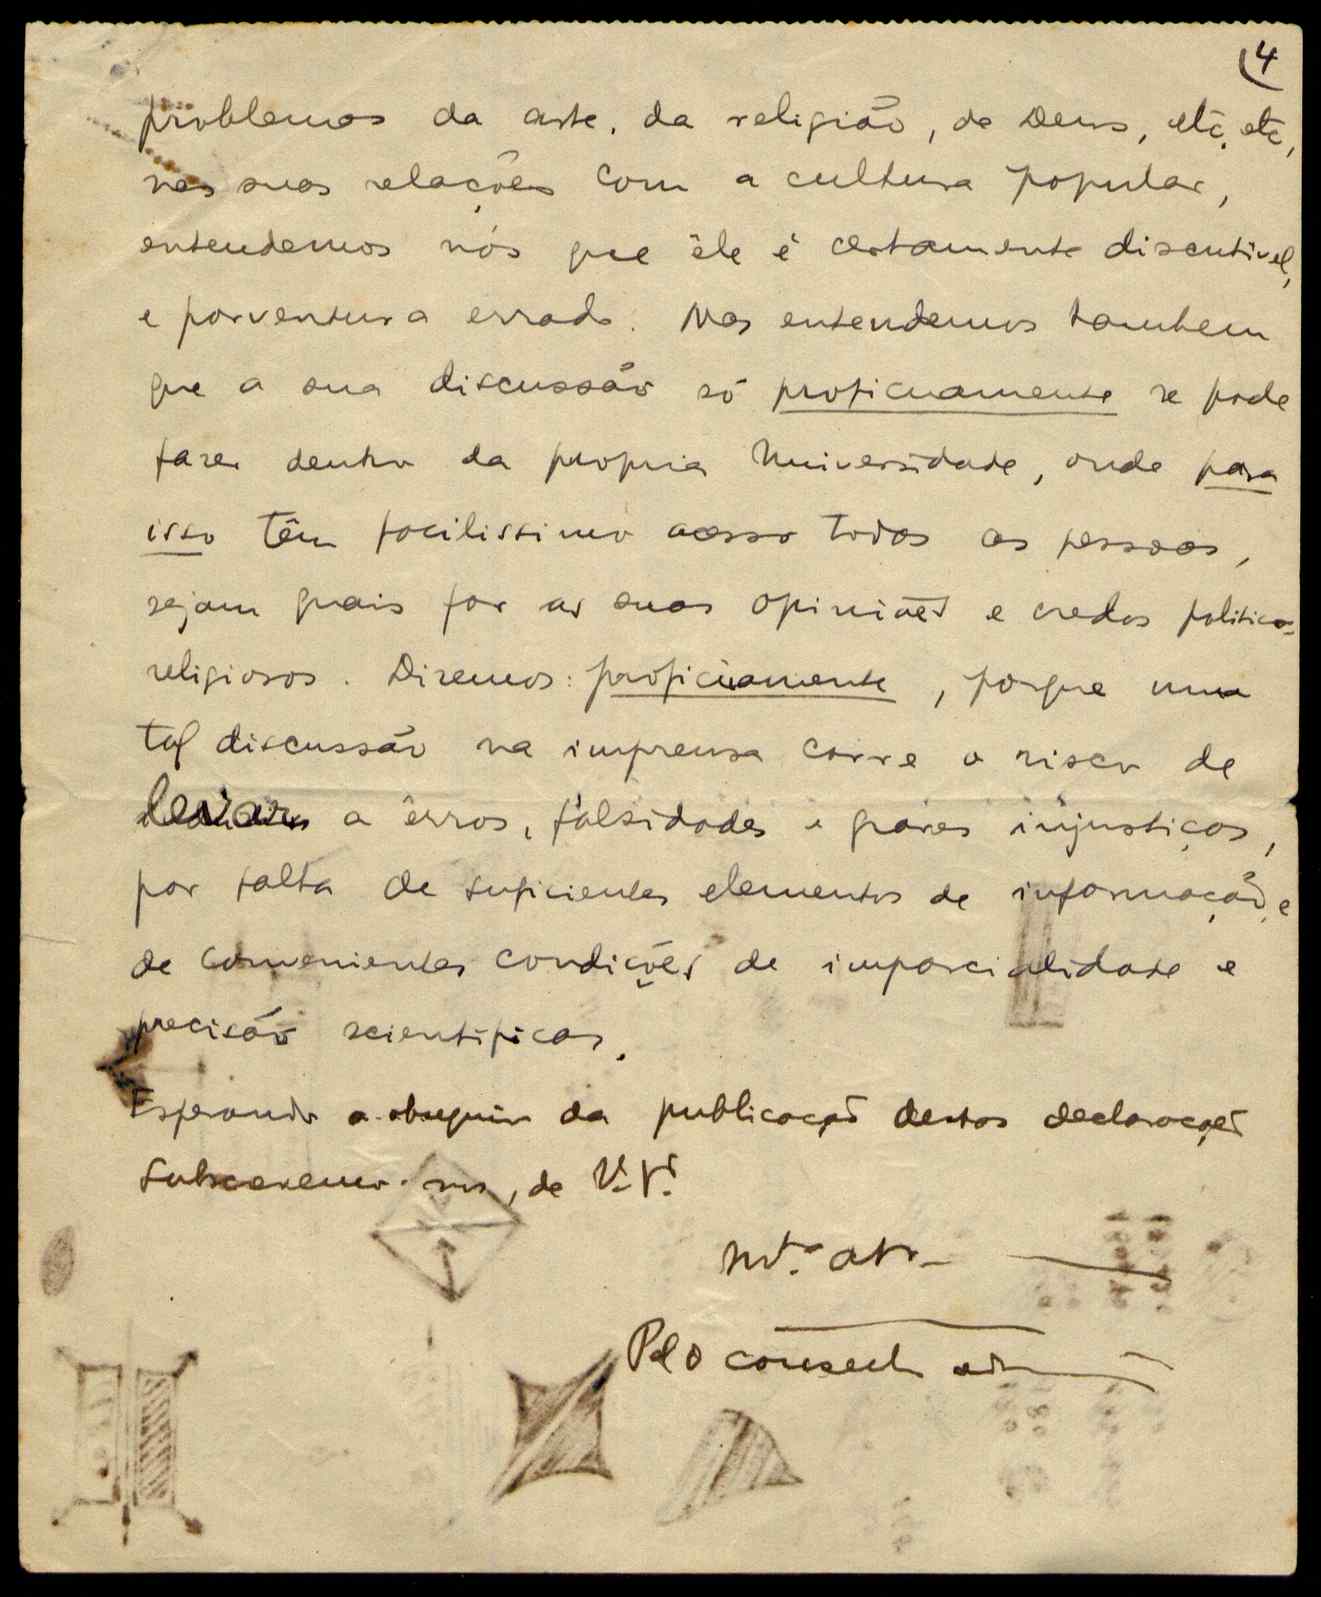 4
problemas da arte, da religião, de Deus, etc, etc,
nas suas relações com a cultura popular,
entendemos nós que êle é certamente discutivel,
e porventura errado. Mas entendemos tambem
que a sua discussão só proficuamente se pode
fazer dentro da propria Universidade, onde para
isso têm facilissimo acesso todas as pessoas,
sejam quais for as suas opiniões e credos politico-
religiosos. Diremos: proficuamente, porque uma
tal discussão na imprensa corre o risco de
levar a êrros, falsidades e graves injustiças,
por falta de suficientes elementos de informação, e
de convenientes condições de imparcialidade e
precisão scientificas.
Esperando o obsequio da publicação destas declarações
subscrevemo-nos, de V. V.
Mt.º at.
Pelo conselh